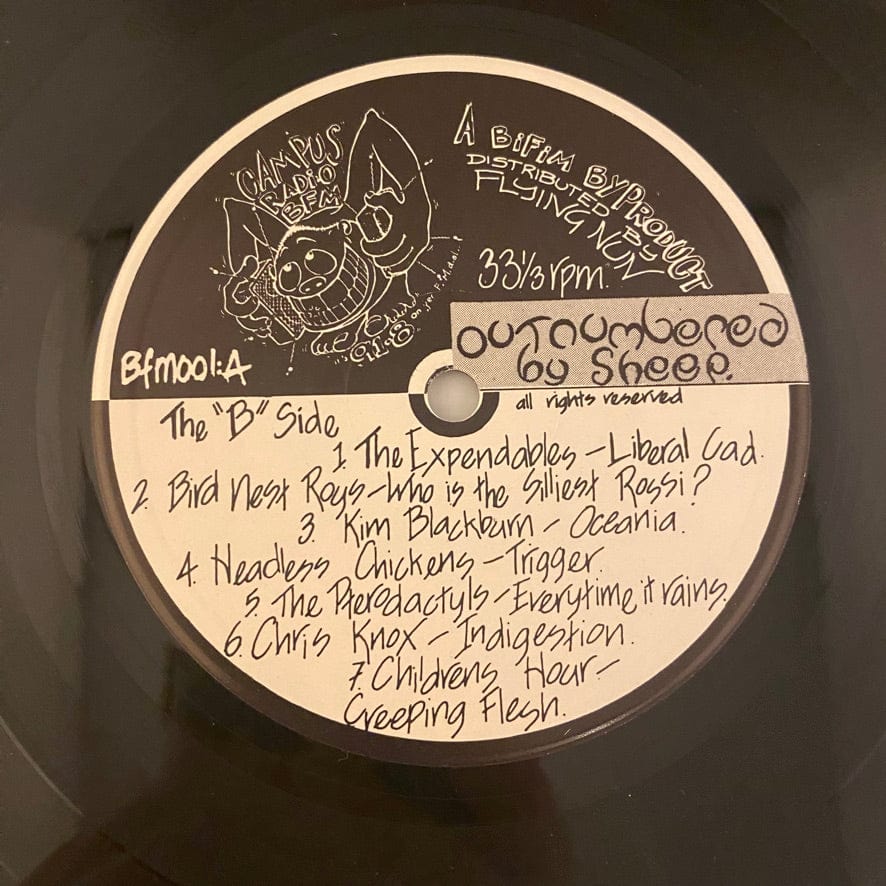 CAMPUS
RADIO
BFM
91·8 on yer F.M. dial...
A BiFiM BYPRODUCT
DISTRIBUTED BY
FLYING NUN
33⅓ rpm.
OUTNUMBERED
by Sheep.
Bfm001:A
all rights reserved
The "B" Side
1. The Expendables – Liberal Cad.
2. Bird Nest Roys – Who is the Silliest Rossi?
3. Kim Blackburn – Oceania.
4. Headless Chickens – Trigger.
5. The Pterodactyls – Everytime it rains.
6. Chris Knox – Indigestion.
7. Childrens Hour –
Creeping Flesh.